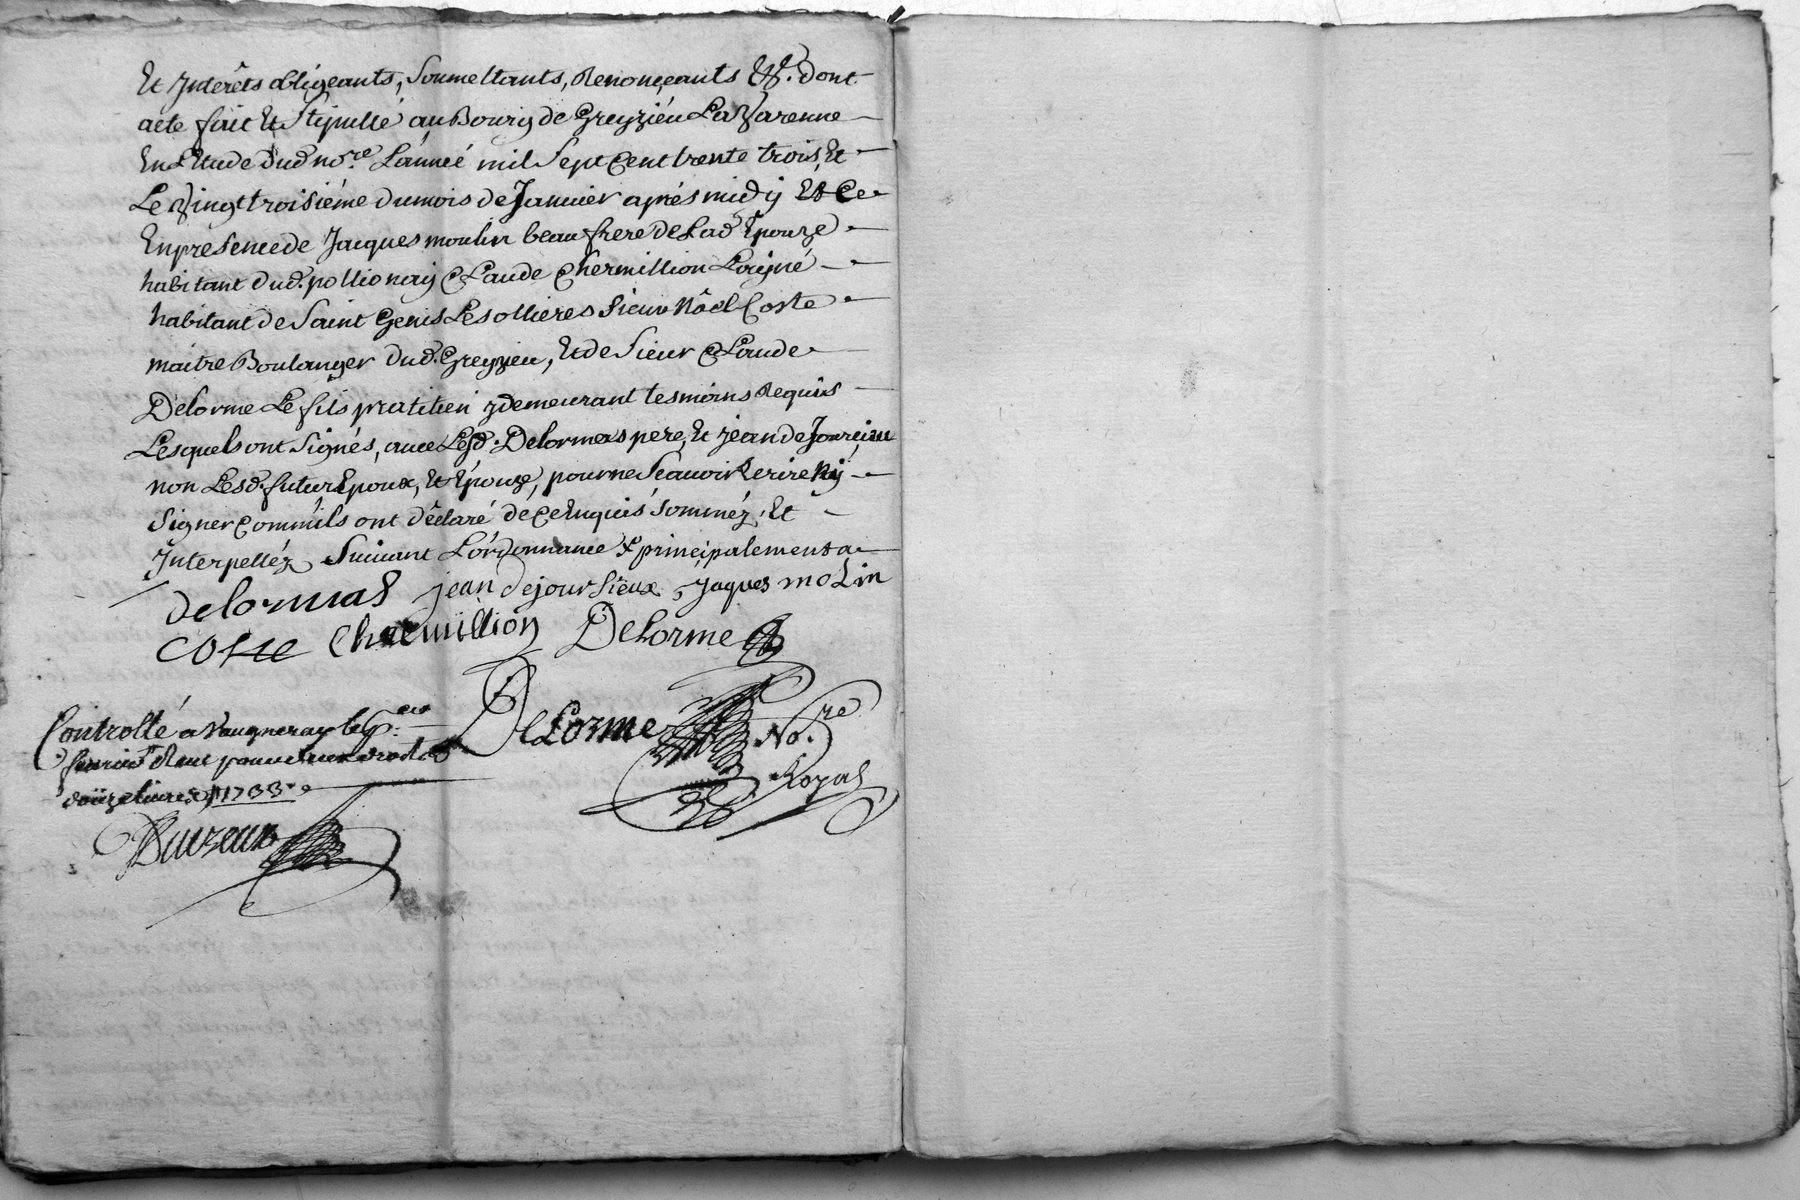 Et Jnterêts obligeants, Soumettants, Renonceants &c. dont
acte fait Et Stipullé au Bourg de Greyziéu La Varenne
En L'Etude dud no.re L'année mil Sept Cent trente trois, Et
Le Vingt troisiéme du mois de Janvier aprés midy Et Ce
En presence de Jacques moulin beau frere de Lad Epouze
habitant dud. pollionay Claude Chermillion L'aigné
habitant de Saint Genis Les ollieres Sieur Nôel Coste
maitre Boulanger dud. Greyzieu, Et de Sieur Claude
Delorme Le fils pratitien y demeurant tesmoins Requis
Lesquels ont Signés, avec Lesd. Delormas pere, Et jean de
non Lesd. futur Epoux, Et Epouze, pour ne Scavoir Ecrire Ny
Signer Comm'ils ont déclaré de Ce Enquis Sommez, Et
Jnterpelléz Suivant L'ordonnance principalement a
delormas jean dejoursieux Jaques molin
coste Chermillion Delorme
Delorme No.re
Royal
Controllé a Vaugneray le
fevrier Reçu pour droits
douze livres 1733